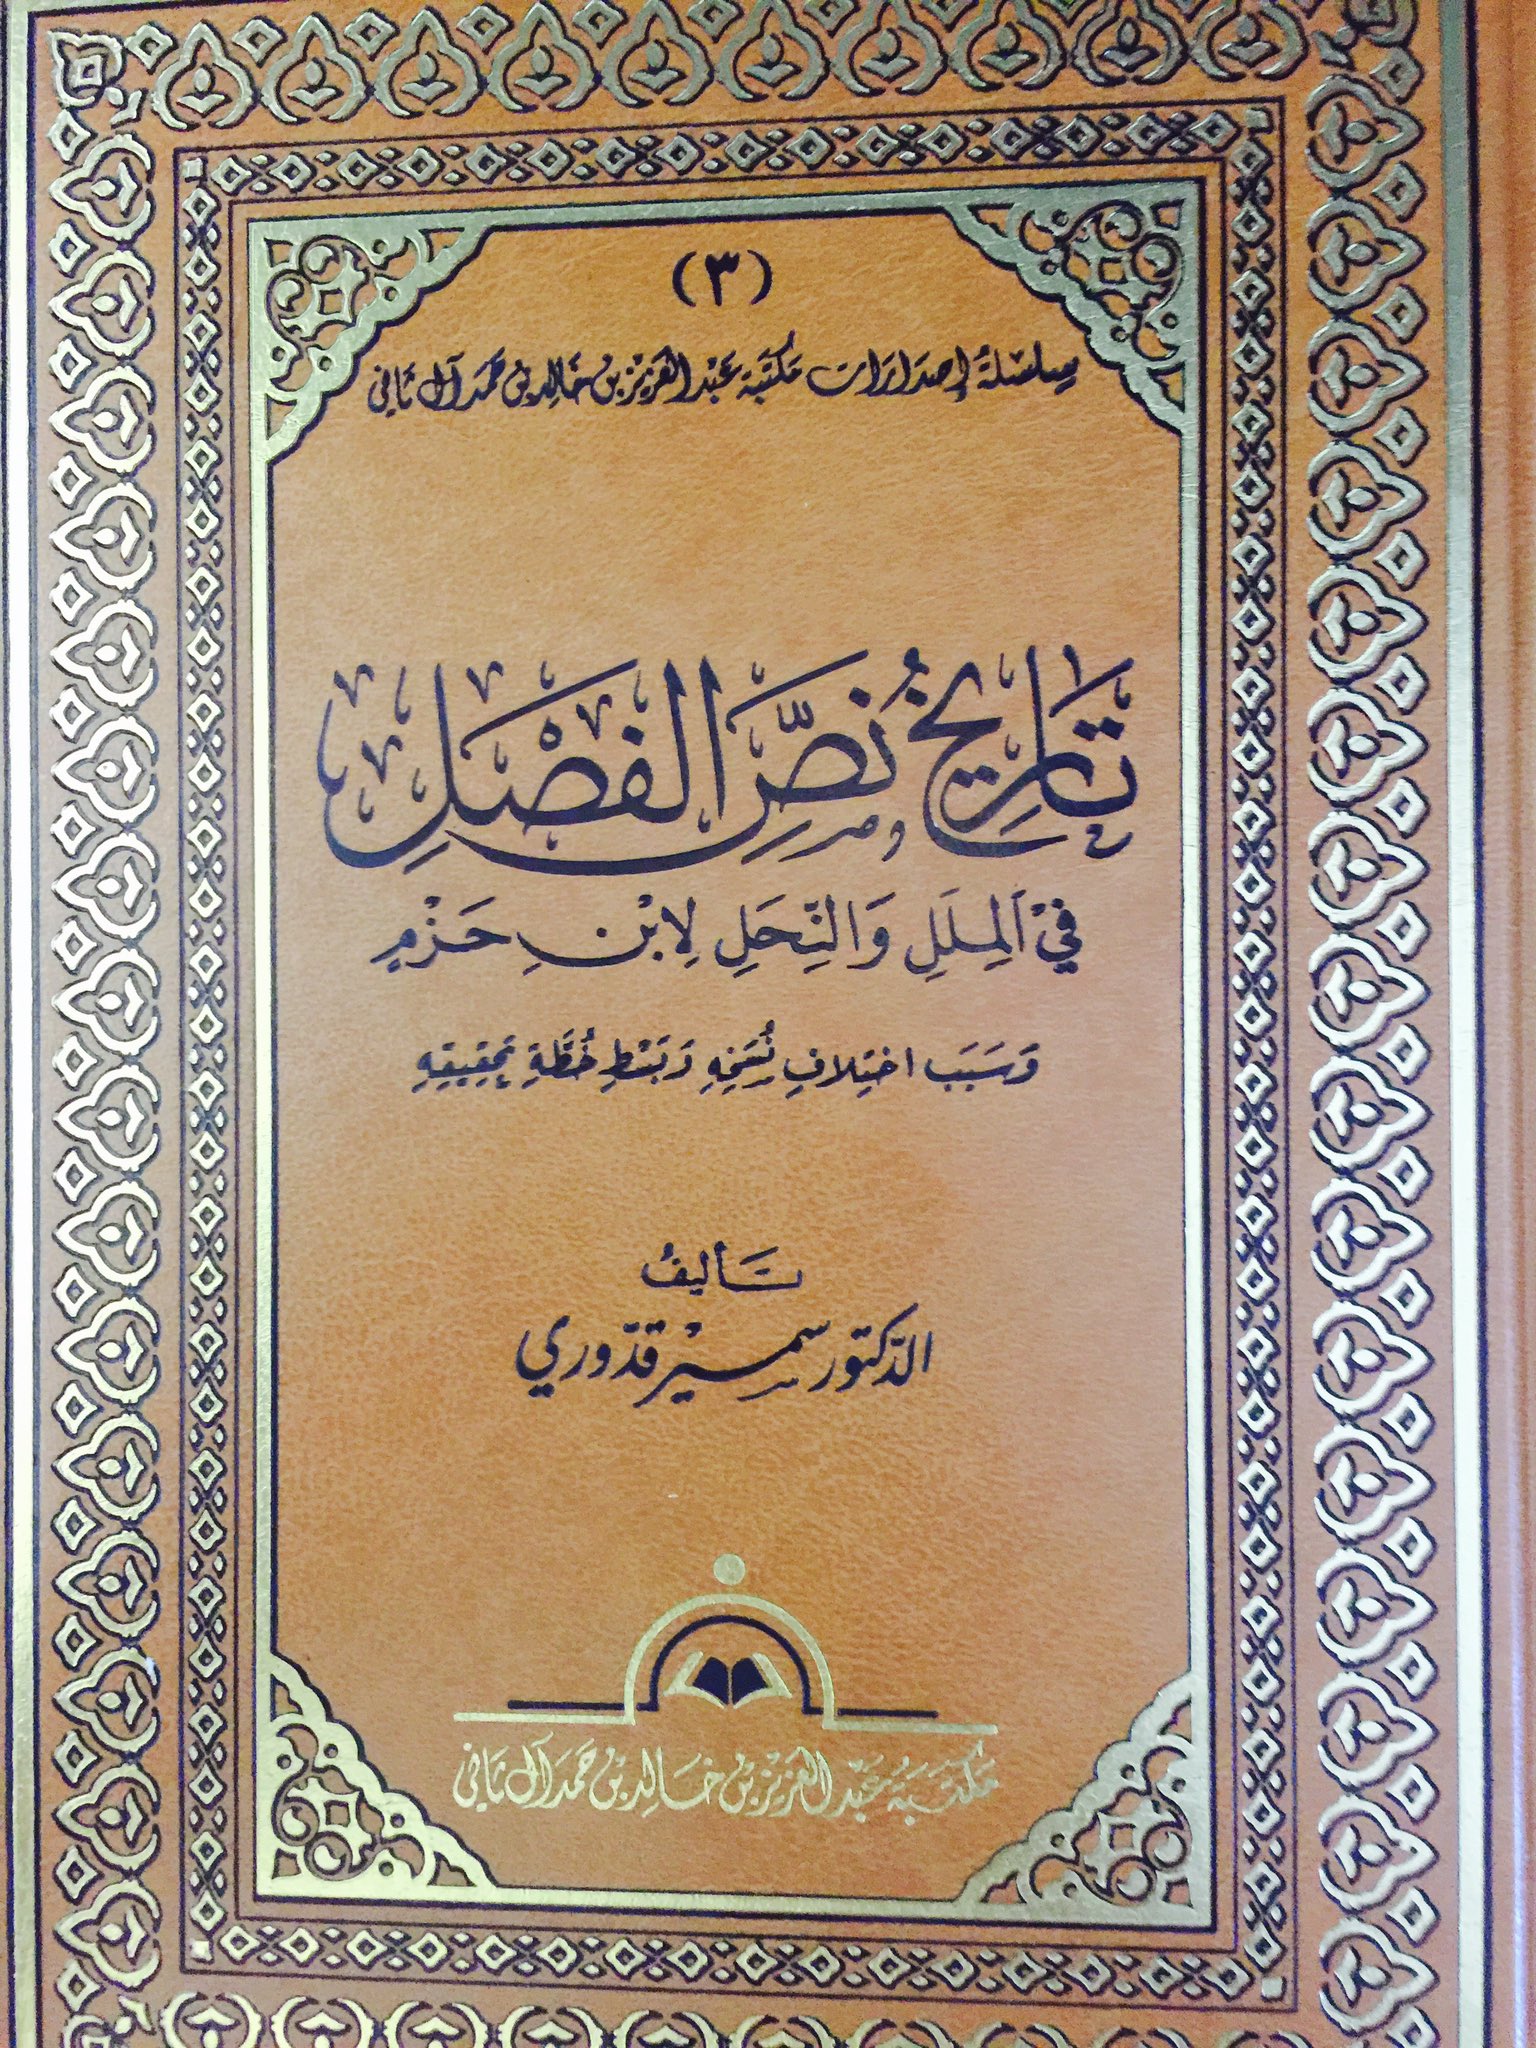 (٣)
سِلْسِلَةُ إِصْدَارَات مَكتَبَة عَبْد العَزِيْز بن خَالِد بن حَمَد آل ثَاني
تَارِيخُ نَصِّ الفَصْلِ
فِيْ المِلَلِ وَالنِّحَلِ لِابْنِ حَزْمٍ
وَسَبَبِ اخْتِلافِ نُسَخِهِ وَبَسْطِ خُطَّةِ تَحْقِيقِهِ
تَأليفُ
الدّكتور سمير قدّوري
مَكتَبَةُ عَبْد العَزِيْز بْن خَالِد بْن حَمَد آل ثَاني